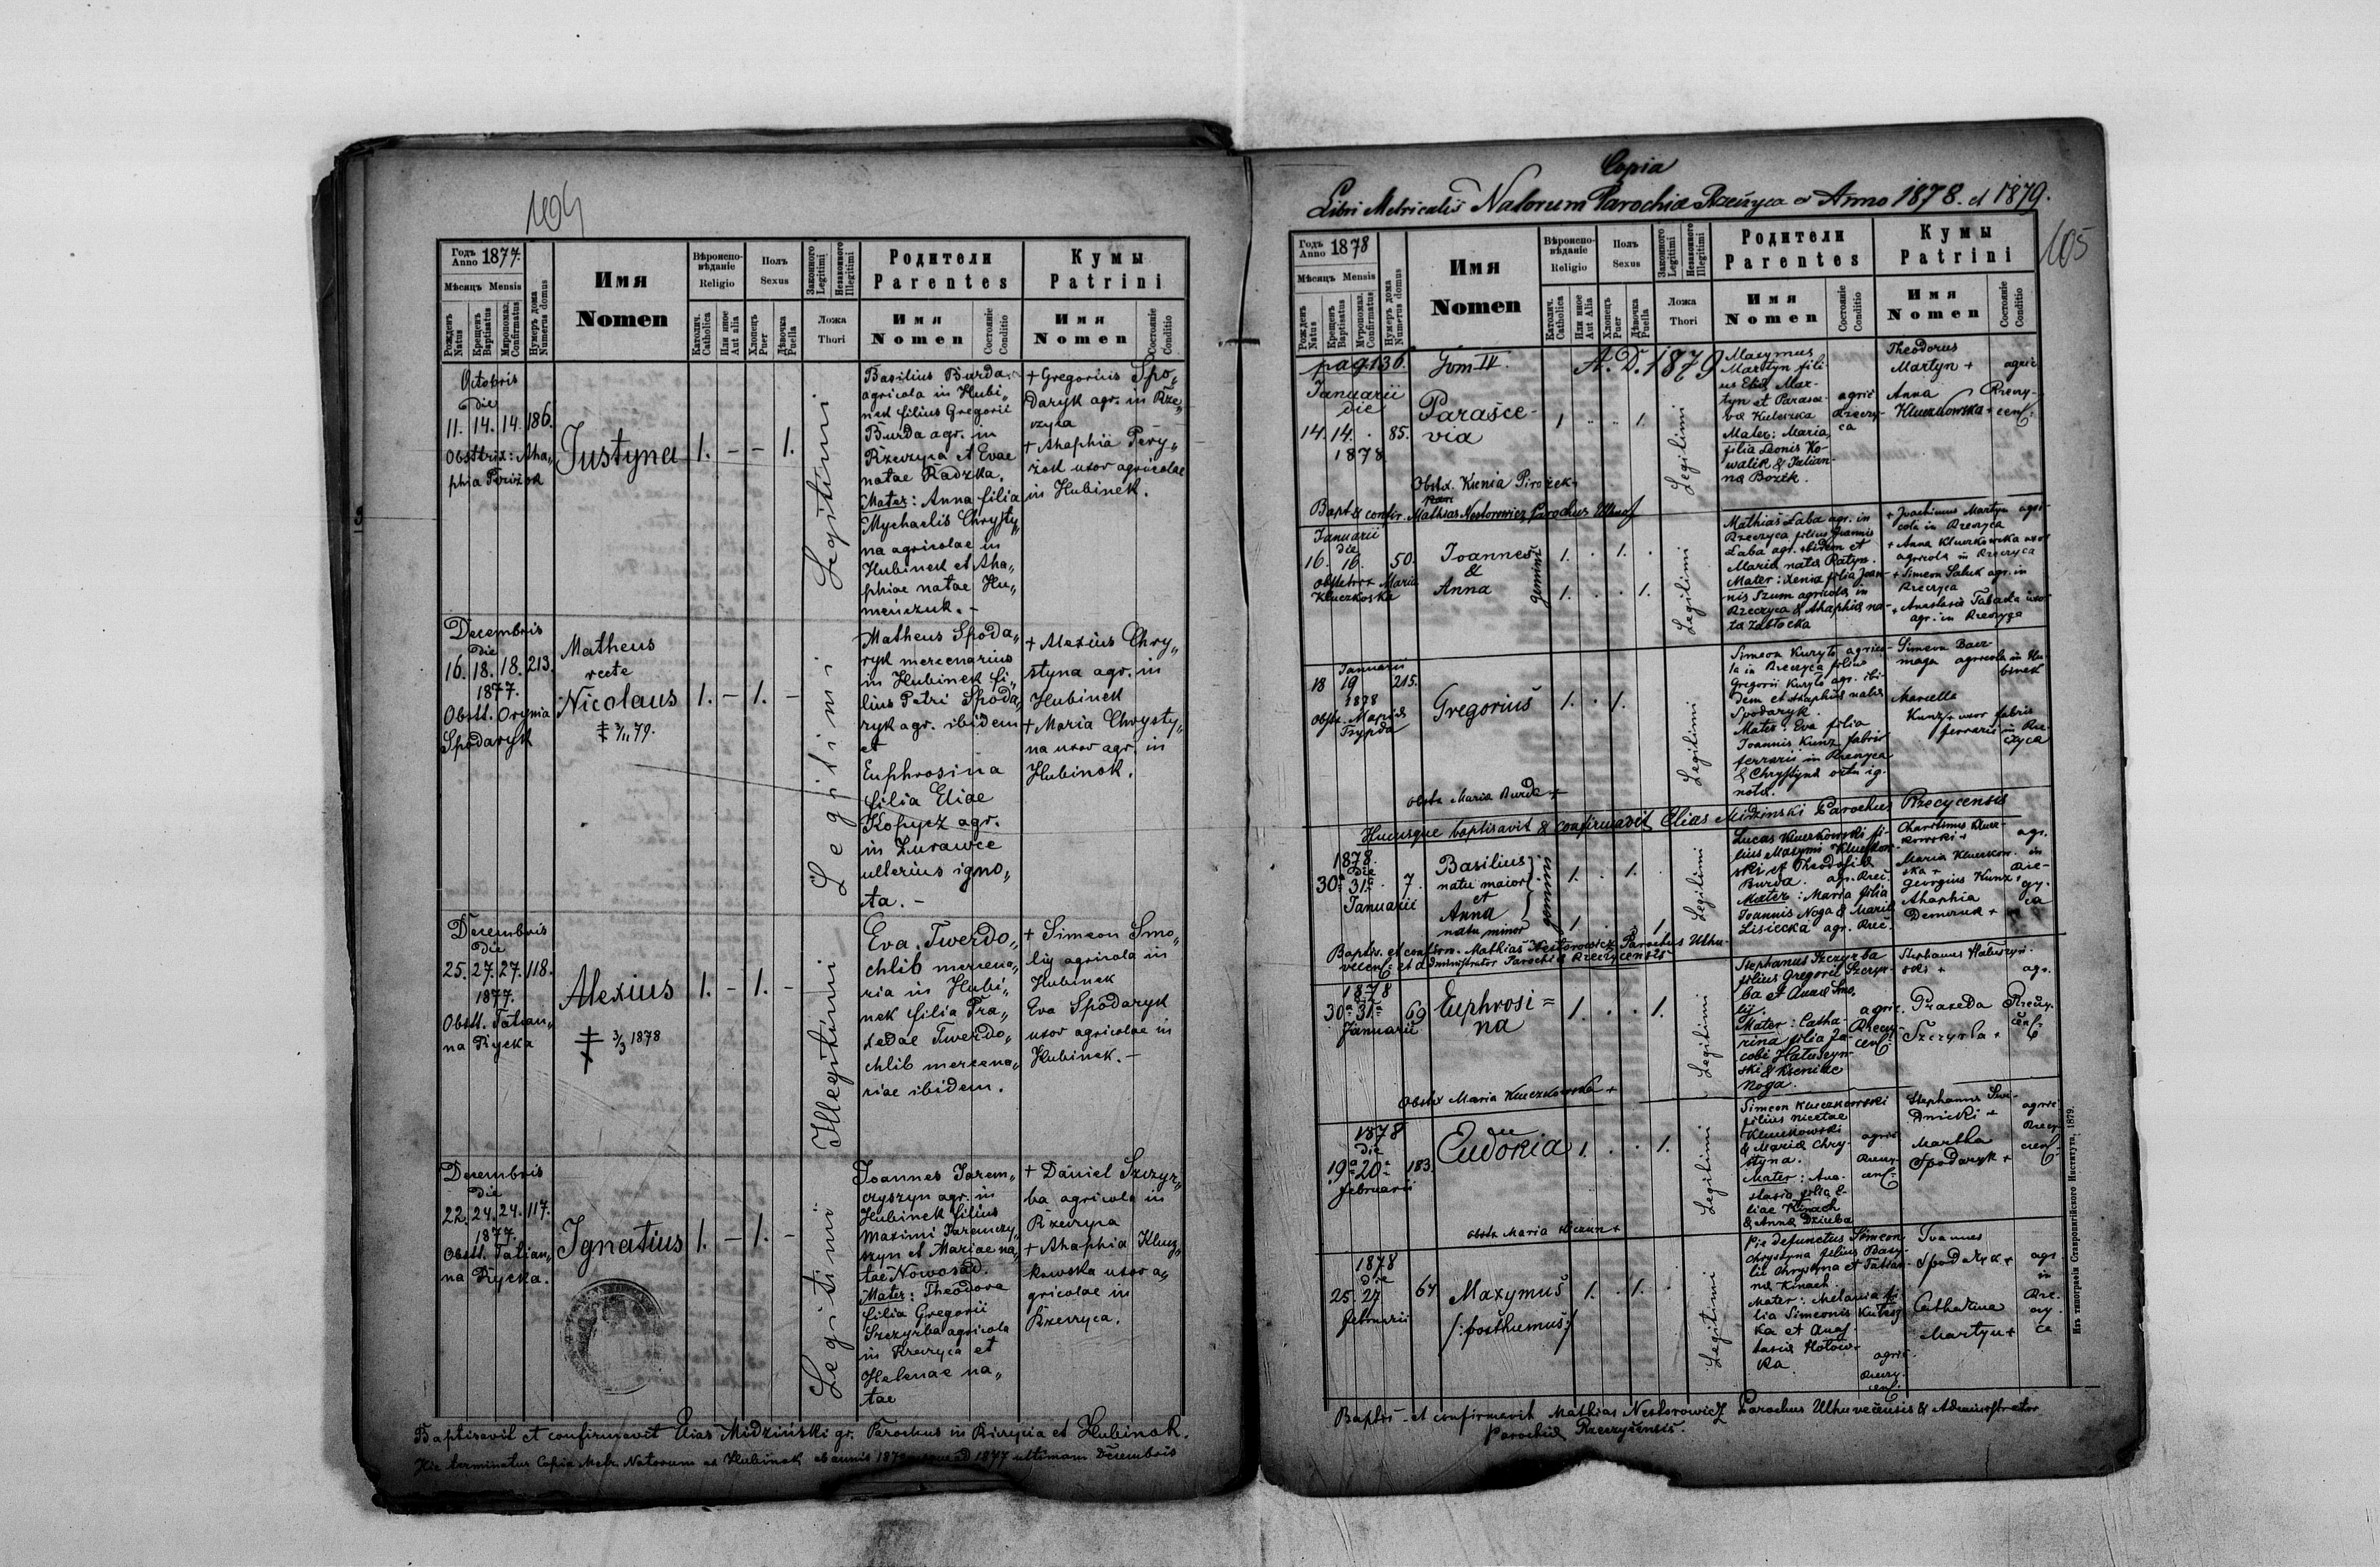 104
Годъ Anno 1877.
Мѣсяць Mensis
Рожденъ Natus
Крещенъ Baptisatus
Мѵропомаз. Confirmatus
Нумеръ дома Numerus domus
Имя
Nomen
Вѣроиспо-
вѣданіе
Religio
Католич. Catholica
Или иное Aut alia
Полъ
Sexus
Хлопецъ Puer
Дѣвочка Puella
Законного Legitimi
Незаконного Illegitimi
Ложа
Thori
Родители
Parentes
Имя
Nomen
Состояніе Conditio
Кумы
Patrini
Имя
Nomen
Состояніе Conditio
Octobris
die
11. 14. 14. 186.
Obstetrix: Aha„
phia
Justyna
1. - - 1.
Legitimi
Basilius Burda
agricola in Hubi„
nek filius Gregorii
Burda agr. in
Rzeczyca et Evae
natae Radzka.
Mater: Anna filia
Mychaelis Chrysty„
na agricolae in
Hubinek et Aha„
phiae natae Hu„
meńczuk. -
+ Gregorius Spo„
daryk agr. in Rze„
czyca
+ Ahaphia Pery„
żok uxor agricolae
in Hubinek.
Decembris
Die
16. 18. 18. 213.
1877.
Obstt. Orynia
Spodaryk
Matheus
recte
Nicolaus
1. - 1. -
Legitimi
Matheus Spoda„
ryk mercenarius
in Hubinek fi„
lius Petri Spoda„
ryk agr. ibidem
et
Euphrosina
filia Eliae
Kopycz agr.
in Żurawce
ulterius igno„
ta. -
+ Alexius Chry„
styna agr. in
Hubinek
+ Maria Chrysty„
na uxor agr. in
Hubinek.
Decembris
Die
25. 27. 27. 118.
1877.
Obstt. Tatian„
na Rycka
Alexius
3/3 1878
1. - 1. -
Illegitimi
Eva Twerdo„
chlib mercena„
ria in Hubi„
nek filia Pra„
xedae Twerdo„
chlib mercena„
riae ibidem.
+ Simeon Smo„
lij agricola in
Hubinek
Eva Spodaryk
uxor agricolae in
Hubinek. -
Decembris
Die
22. 24. 24. 117.
1877.
Obstt. Tatian„
na Rycka.
Ignatius
1. - 1. -
Legitimi
Joannes Jarem„
czyszyn agr. in
Hubinek filius
Maximi Jaremczy„
szyn et Mariae na„
tae Nowosad.
Mater: Theodora
filia Gregorii
Szczyrba agricola
in Rzeczyca et
Helenae na„
tae
+ Daniel Szczyr„
ba agricola in
Rzeczyca
+ Ahaphia Klucz„
kowska uxor a„
gricolae in
Rzeczyca.
Baptisavit et confirmavit Elias Midziński gr. Parochus in Rzeczyca et Hubinok.
Hic terminatur Copia Metr. Natorum ex Hubinok ab annis 1870 usque ad 1877 ultimam Decembris
Copia
Libri Metricalis Natorum Parochiæ Rzeczyca Anno 1878. et 1879.
105
Годъ Anno 1878
Мѣсяць Mensis
Рожденъ Natus
Крещенъ Baptisatus
Мѵропомаз. Confirmatus
Нумеръ дома Numerus domus
Имя
Nomen
Вѣроиспо-
вѣданіе
Religio
Католич. Catholica
Или иное Aut alia
Полъ
Sexus
Хлопецъ Puer
Дѣвочка Puella
Законного Legitimi
Незаконного Illegitimi
Ложа
Thori
Родители
Parentes
Имя
Nomen
Состояніе Conditio
Кумы
Patrini
Имя
Nomen
Состояніе Conditio
pag. 136. Tom IV. A. D. 1879
Januarii
die
14. 14. . 85.
1878
Parasce-
via
1 . . 1.
Legitimi
Maxymus
Martyn fili-
us Mar-
tyn et Parasce-
væ Kuleszka
Mater: Maria,
filia Leonis Ko-
walik & Julian-
na Bozek.
agric
Rzeczy-
ca
Theodorus
Martyn +
Anna
Kluczkowska +
agric
Rzeczy-
cens.
Obstx. Ksenia Pirozek +
Bapt. & confir. Mathias Nestorowicz, Parochus
Januarii
die
16. 16. 50.
Obstetrix Maria
Kluczkoska
Joannes
&
Anna
gemini
1. . 1. .
1. . . 1.
Legitimi
Mathias Łaba agr. in
Rzeczyca filius Joannis
Łaba agr. ibidem et
Maria nata Ratyn.
Mater: Xenia filia Joan-
nis Szum agricola in
Rzeczyca & Ahaphia na-
ta Zabłocka
+ Joachimus Martyn agri-
cola in Rzeczyca
+ Anna Kluczkowska uxor
agricola in Rzeczyca
+ Simeon Saluk agr. in
Rzeczyca
+ Anastasia Tabaka uxor
agr. in Rzeczyca
Januarii
18 19 215.
1878
Obstx. Maria
Gregorius
1. . 1.
Legitimi
Simeon Kuryło agrico-
la in Rzeczyca filius
Gregorii Kuryło agr. ibi-
dem et Ahaphia nata
Spodaryk.
Mater: Eva filia
Joannis Kunz fabri
ferrarii in Rzeczyca
& Chrystyna ortu ig-
nota.
Simeon Bacz-
maga agricola in Hu-
binek
Marcella
Kunz + uxor fabri
ferrarii in Rze-
czyca
obstx Maria Burda +
Hucusque baptisavit & confirmavit Elias Midzinski Parochus Rzeczycensis
1878.
Die
30ª 31ª . 7.
Januarii
Basilius
natu maior
et
Anna
natu minor
gemini
1. . 1.
1 . . 1
Legitimi
Lucas Kluczkowski fi-
lius Maxymi Kluczkow-
ski et Theodosia
Burda. agr. Rzec.
Mater: Maria filia
Joannis Noga & Maria
Lisiecka agr. Rzec.
Charitimus Klucz-
kowski +
Maria Kluczkow-
ska +
Georgius Kunz +
Ahaphia
Demczuk +
agr.
in
Rze-
czy-
ca
Baptis. et confirm. Mathias Nestorowicz Parochus Uhnu-
vecens. et administrator Parochiæ Rzeczycensis
1878
30ª 31ª 69
Januarii
Euphrosi=
na
1. . . 1.
Legitimi
Stephanus Szczyrba
filius Gregorii Szczyr-
ba et Anna Smo-
lij.
Mater: Catha-
rina filia Ja-
cobi Hałuszyn-
ski & Kseniae
Noga.
agric.
Rzeczy-
cens.
Stephanus Haluszyn-
ski +
Praxeda
Szczyrba +
agr.
Rzeczy-
cens.
Obstx Maria Kluczkowska +
1878
die
19ª 20ª 183.
Februarii
Eudokia
1. . . 1.
Legitimi
Simeon Kluczkowski
filius Nicetae
Kluczkowski
& Maria Chry-
styna.
Mater: Ana-
stasia filia E-
liae Kinach
& Anna Dziuba
agric.
Rzeczy-
cens.
Stephanus Swi-
dnicki +
Martha
Spodaryk +
agric
Rzeczy-
cens.
obstx Maria Kiczun +
1878
die
25. 27 64
Februarii
Maxymus
/:posthumus:/
1. . 1.
Legitimi
Pie defunctus Simeon
Chrystyna filius Basy-
lii Chrystyna et Tatian-
na Kinach.
Mater: Melania fi-
lia Simeonis Kulesz-
ka et Anas-
tasia Hołow-
ka.
agric.
Rzeczy-
cens.
Joannes
Spodaryk +
Catharina
Martyn +
agr.
in
Rze-
czy-
ca
Baptis. et confirmavit Mathias Nestorowicz Parochus Uhnuvecensis & Administrator
Parochiæ Rzeczycensis.
Изъ типографіи Ставропигійского Института, 1879.